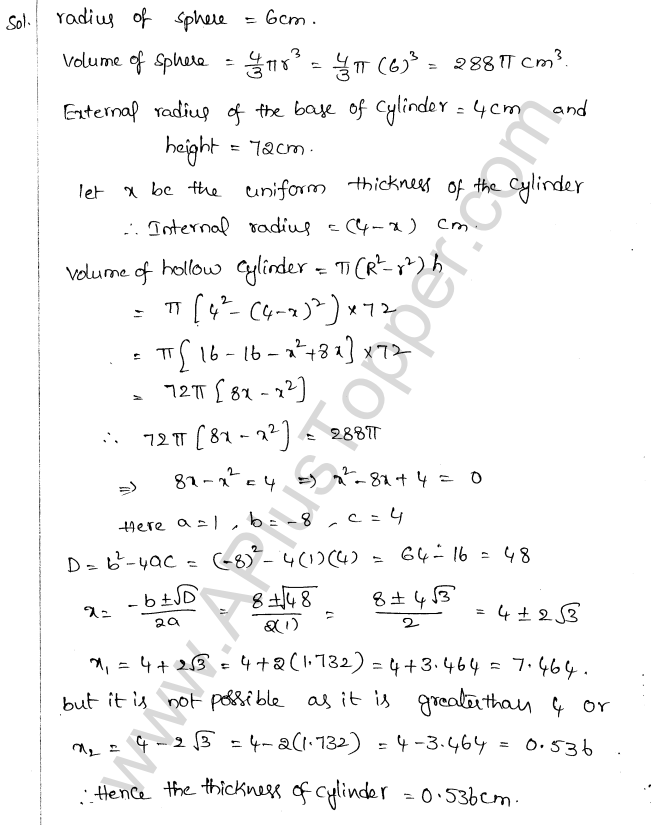 Sol. radius of sphere = 6cm.
Volume of sphere = 4/3 πr³ = 4/3 π (6)³ = 288π cm³.
External radius of the base of cylinder = 4cm and
height = 72cm.
let x be the uniform thickness of the cylinder
∴ Internal radius = (4-x) cm.
Volume of hollow cylinder = π(R²-r²)h
= π[4²-(4-x)²] × 72
= π[16-16-x²+8x] × 72
= 72π[8x-x²]
∴ 72π[8x-x²] = 288π
⇒ 8x-x² = 4 ⇒ x²-8x+4 = 0
Here a=1, b=-8, c=4
D = b²-4ac = (-8)²-4(1)(4) = 64-16 = 48
x = (-b±√D)/2a = (8±√48)/2(1) = (8±4√3)/2 = 4±2√3
x₁ = 4+2√3 = 4+2(1.732) = 4+3.464 = 7.464.
but it is not possible as it is greaterthan 4 or
x₂ = 4-2√3 = 4-2(1.732) = 4-3.464 = 0.536.
∴ Hence the thickness of cylinder = 0.536cm.
www.APlusTopper.com